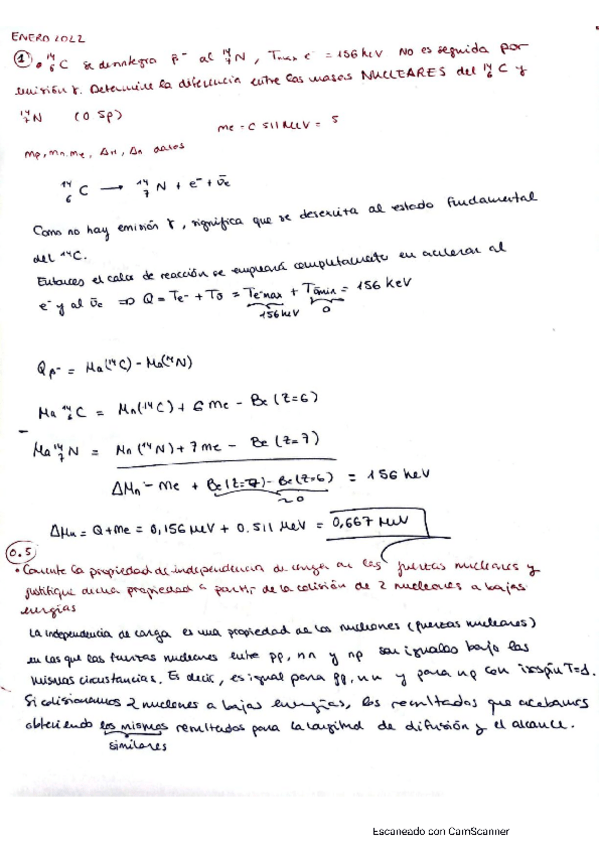 ENERO 2022
① • ¹⁴₆C se desintegra β⁻ al ¹⁴₇N, Tmax e⁻ = 156 keV No es seguida por
emisión γ. Determine la diferencia entre las masas NUCLEARES del ¹⁴₆C y
¹⁴₇N (0 5p)
me = 0 511 MeV = 5
mp, mn, me, Δn, Δn datos
¹⁴₆C → ¹⁴₇N + e⁻ + ν̄e
Como no hay emisión γ, significa que se desexcita al estado fundamental
del ¹⁴C.
Entonces el calor de reacción se empleará completamente en acelerar al
e⁻ y al ν̄e ⇒ Q = Te⁻ + Tν̄ = Te⁻max + Tν̄min = 156 keV
156 keV 0
Qβ⁻ = Ma(¹⁴C) - Ma(¹⁴N)
Ma ¹⁴₆C = Mn(¹⁴C) + 6me - Be(Z=6)
- Ma ¹⁴₇N = Mn(¹⁴N) + 7me - Be(Z=7)
ΔMn - me + Be(Z=7) - Be(Z=6) = 156 keV
≈0
ΔMn = Q + me = 0,156 MeV + 0.511 MeV = 0,667 MeV
0.5
• Comente la propiedad de independencia de carga de las fuerzas nucleares y
justifique dicha propiedad a partir de la colisión de 2 nucleones a bajas
energías
La independencia de carga es una propiedad de los nucleones (fuerzas nucleares)
en las que las fuerzas nucleares entre pp, nn y np son iguales bajo las
mismas circunstancias. Es decir, es igual para pp, nn y para np con isospín T=1.
Si colisionamos 2 nucleones a bajas energías, los resultados que acabamos
obteniendo los mismos resultados para la longitud de difusión y el alcance.
similares
Escaneado con CamScanner